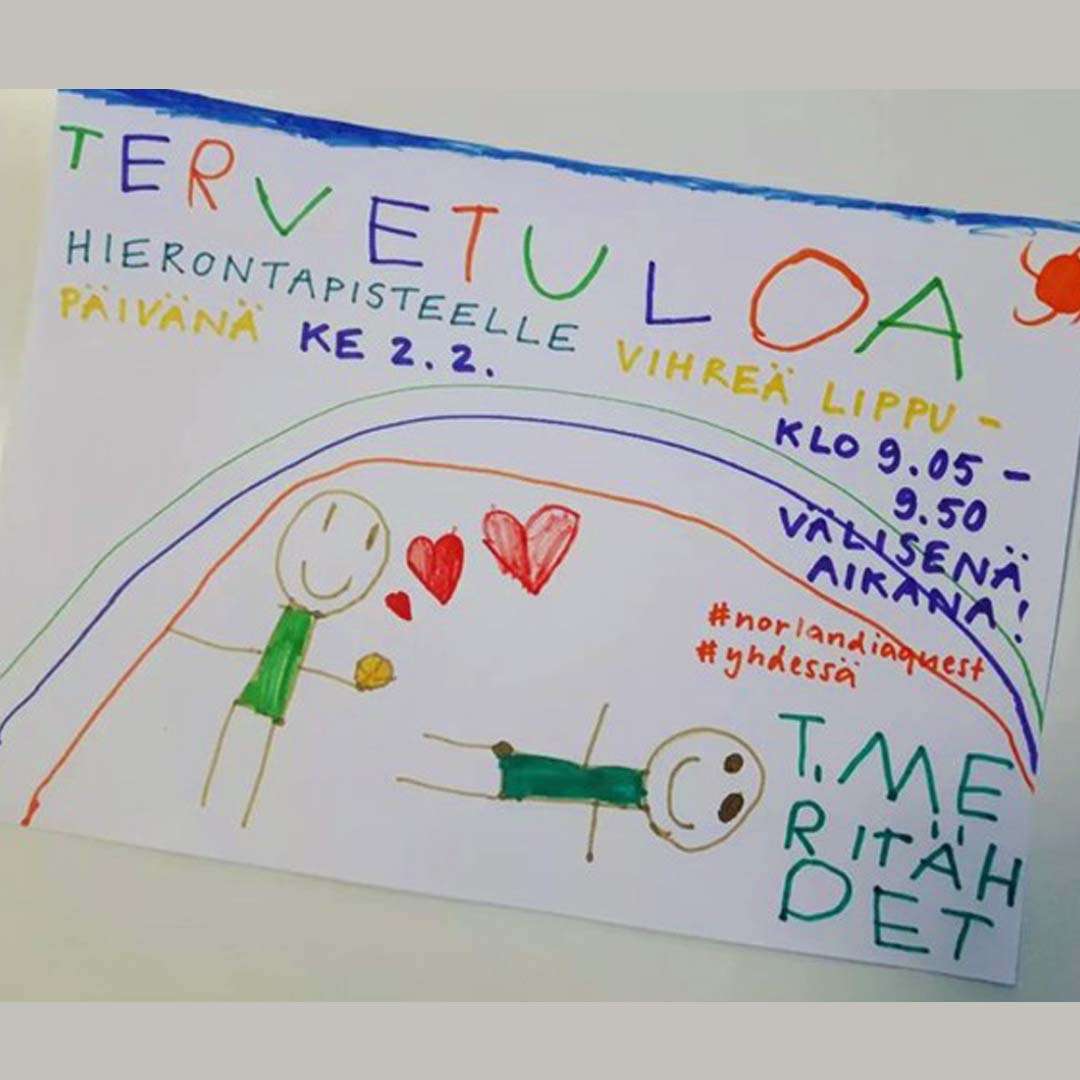 TERVETULOA
HIERONTAPISTEELLE VIHREÄ LIPPU -
PÄIVÄNÄ KE 2.2. KLO 9.05 -
9.50
VÄLISENÄ
AIKANA!
#norlandiaquest
#yhdessä
T. ME
RITÄH
DET